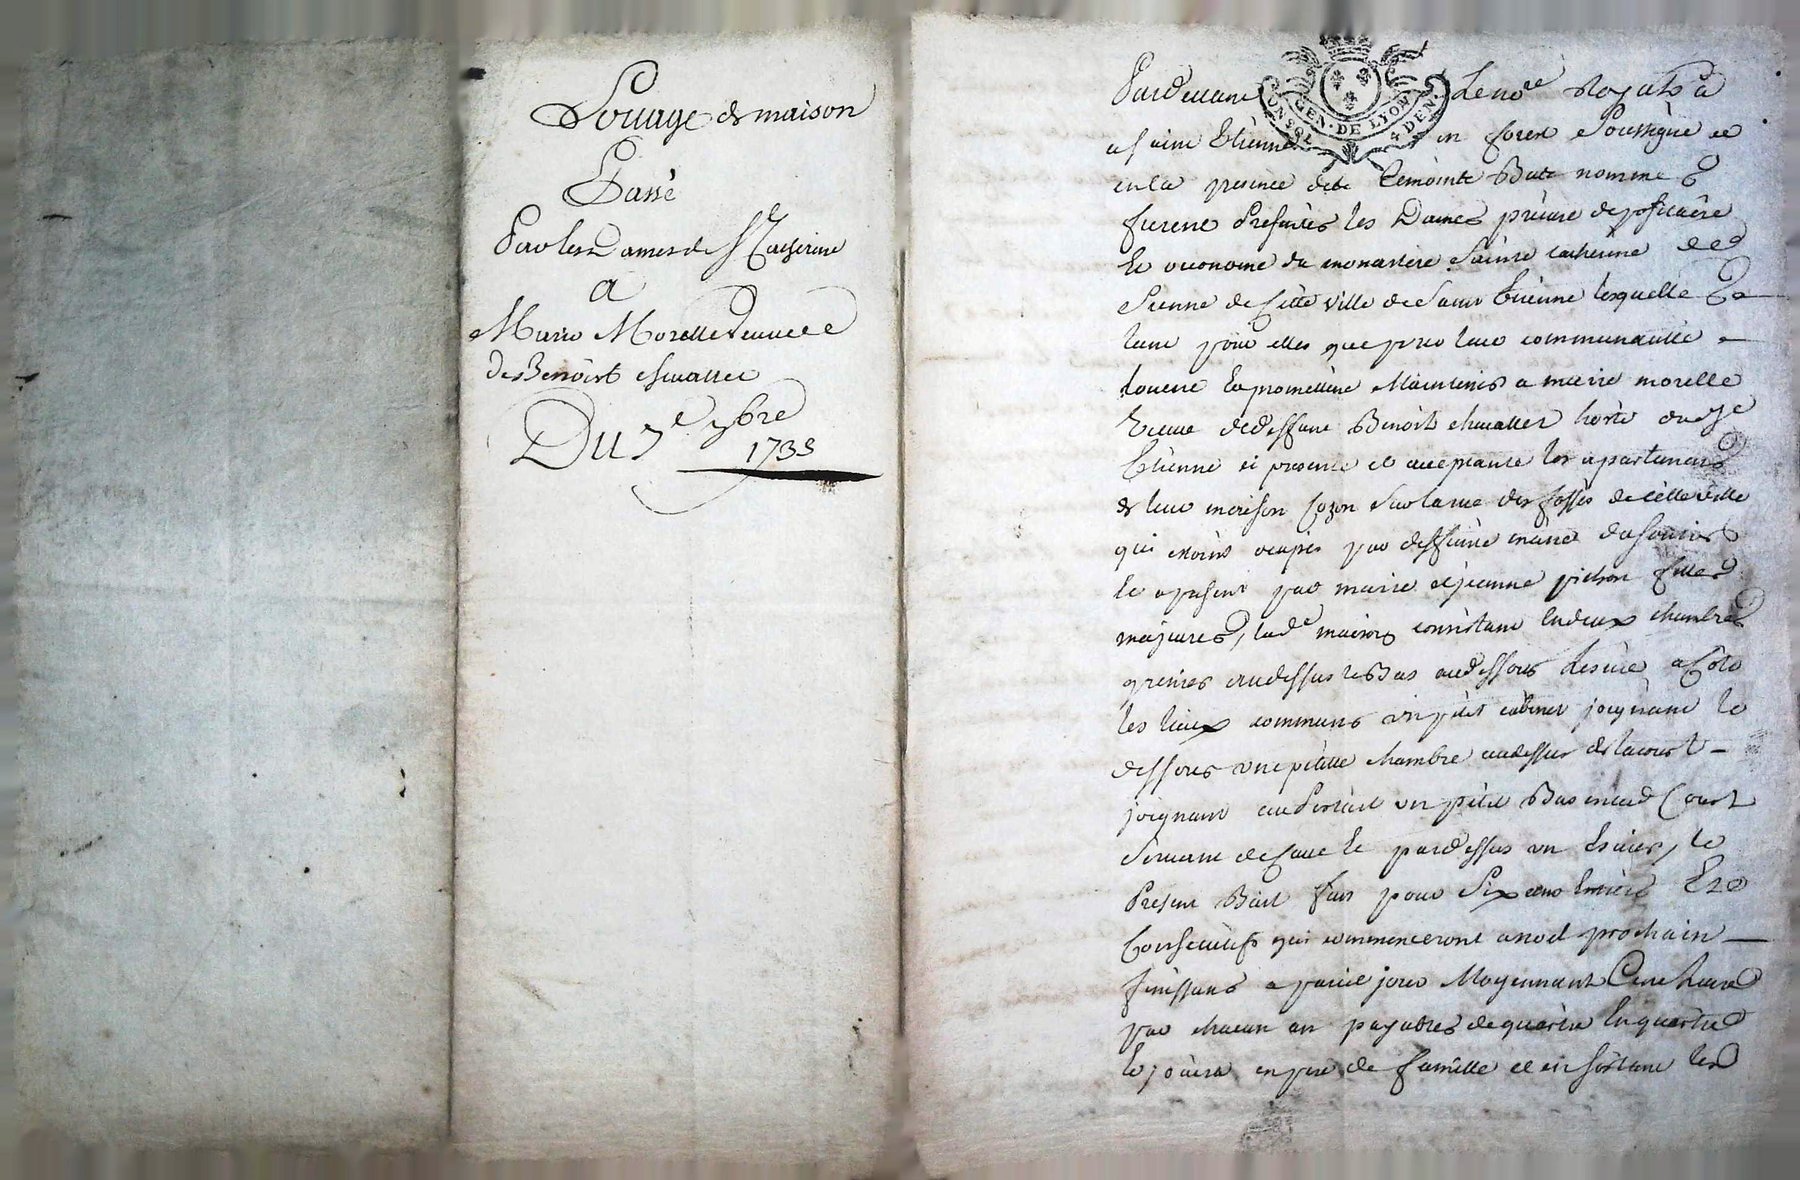 Louage de maison
Passé
Par les Dames de Ste Catherine
A
Marie Morelle veuve
de Benoist chevallier
Du 7e 7bre
1735
GEN. DE LYON
4 DEN
Pardevant Le nore Royal à
a saint Etienne en forest soussigné et
en la presence des temoints Bas nommés
furent Presentes les Dames prieure depositaire
et oeconome du monastere Sainte catherine de
Sienne de Cette ville de Saint Etienne lesquelle
tant pour elles que pour leur communauté
louent et promettent Maintenir a marie morelle
veuve de deffunt Benoist chevallier hoste de St
Etienne ci presente et acceptante les apartements
de leur maison sur la rue des fossés de cette ville
qui etoint ocupés par deffunte marie
et a present par marie et jeanne pichon filles
majeures, lade maison consistant en deux chambres
greniers au dessus et Bas au dessous a Coté
les lieux communs un petit cabinet joignant le
dessous une petitte chambre au dessus de la court
joignant un petit Bas en lad Court
servant de Cave et par dessus un, le
Present Bail fait pour Six ans entiers Et
Consecutifs qui commenceront a noel prochain
finissants a pareil jour Moyennant Cent livres
par chacun an payables de quartier en quartier
et jouira en pere de famille et en sortant les